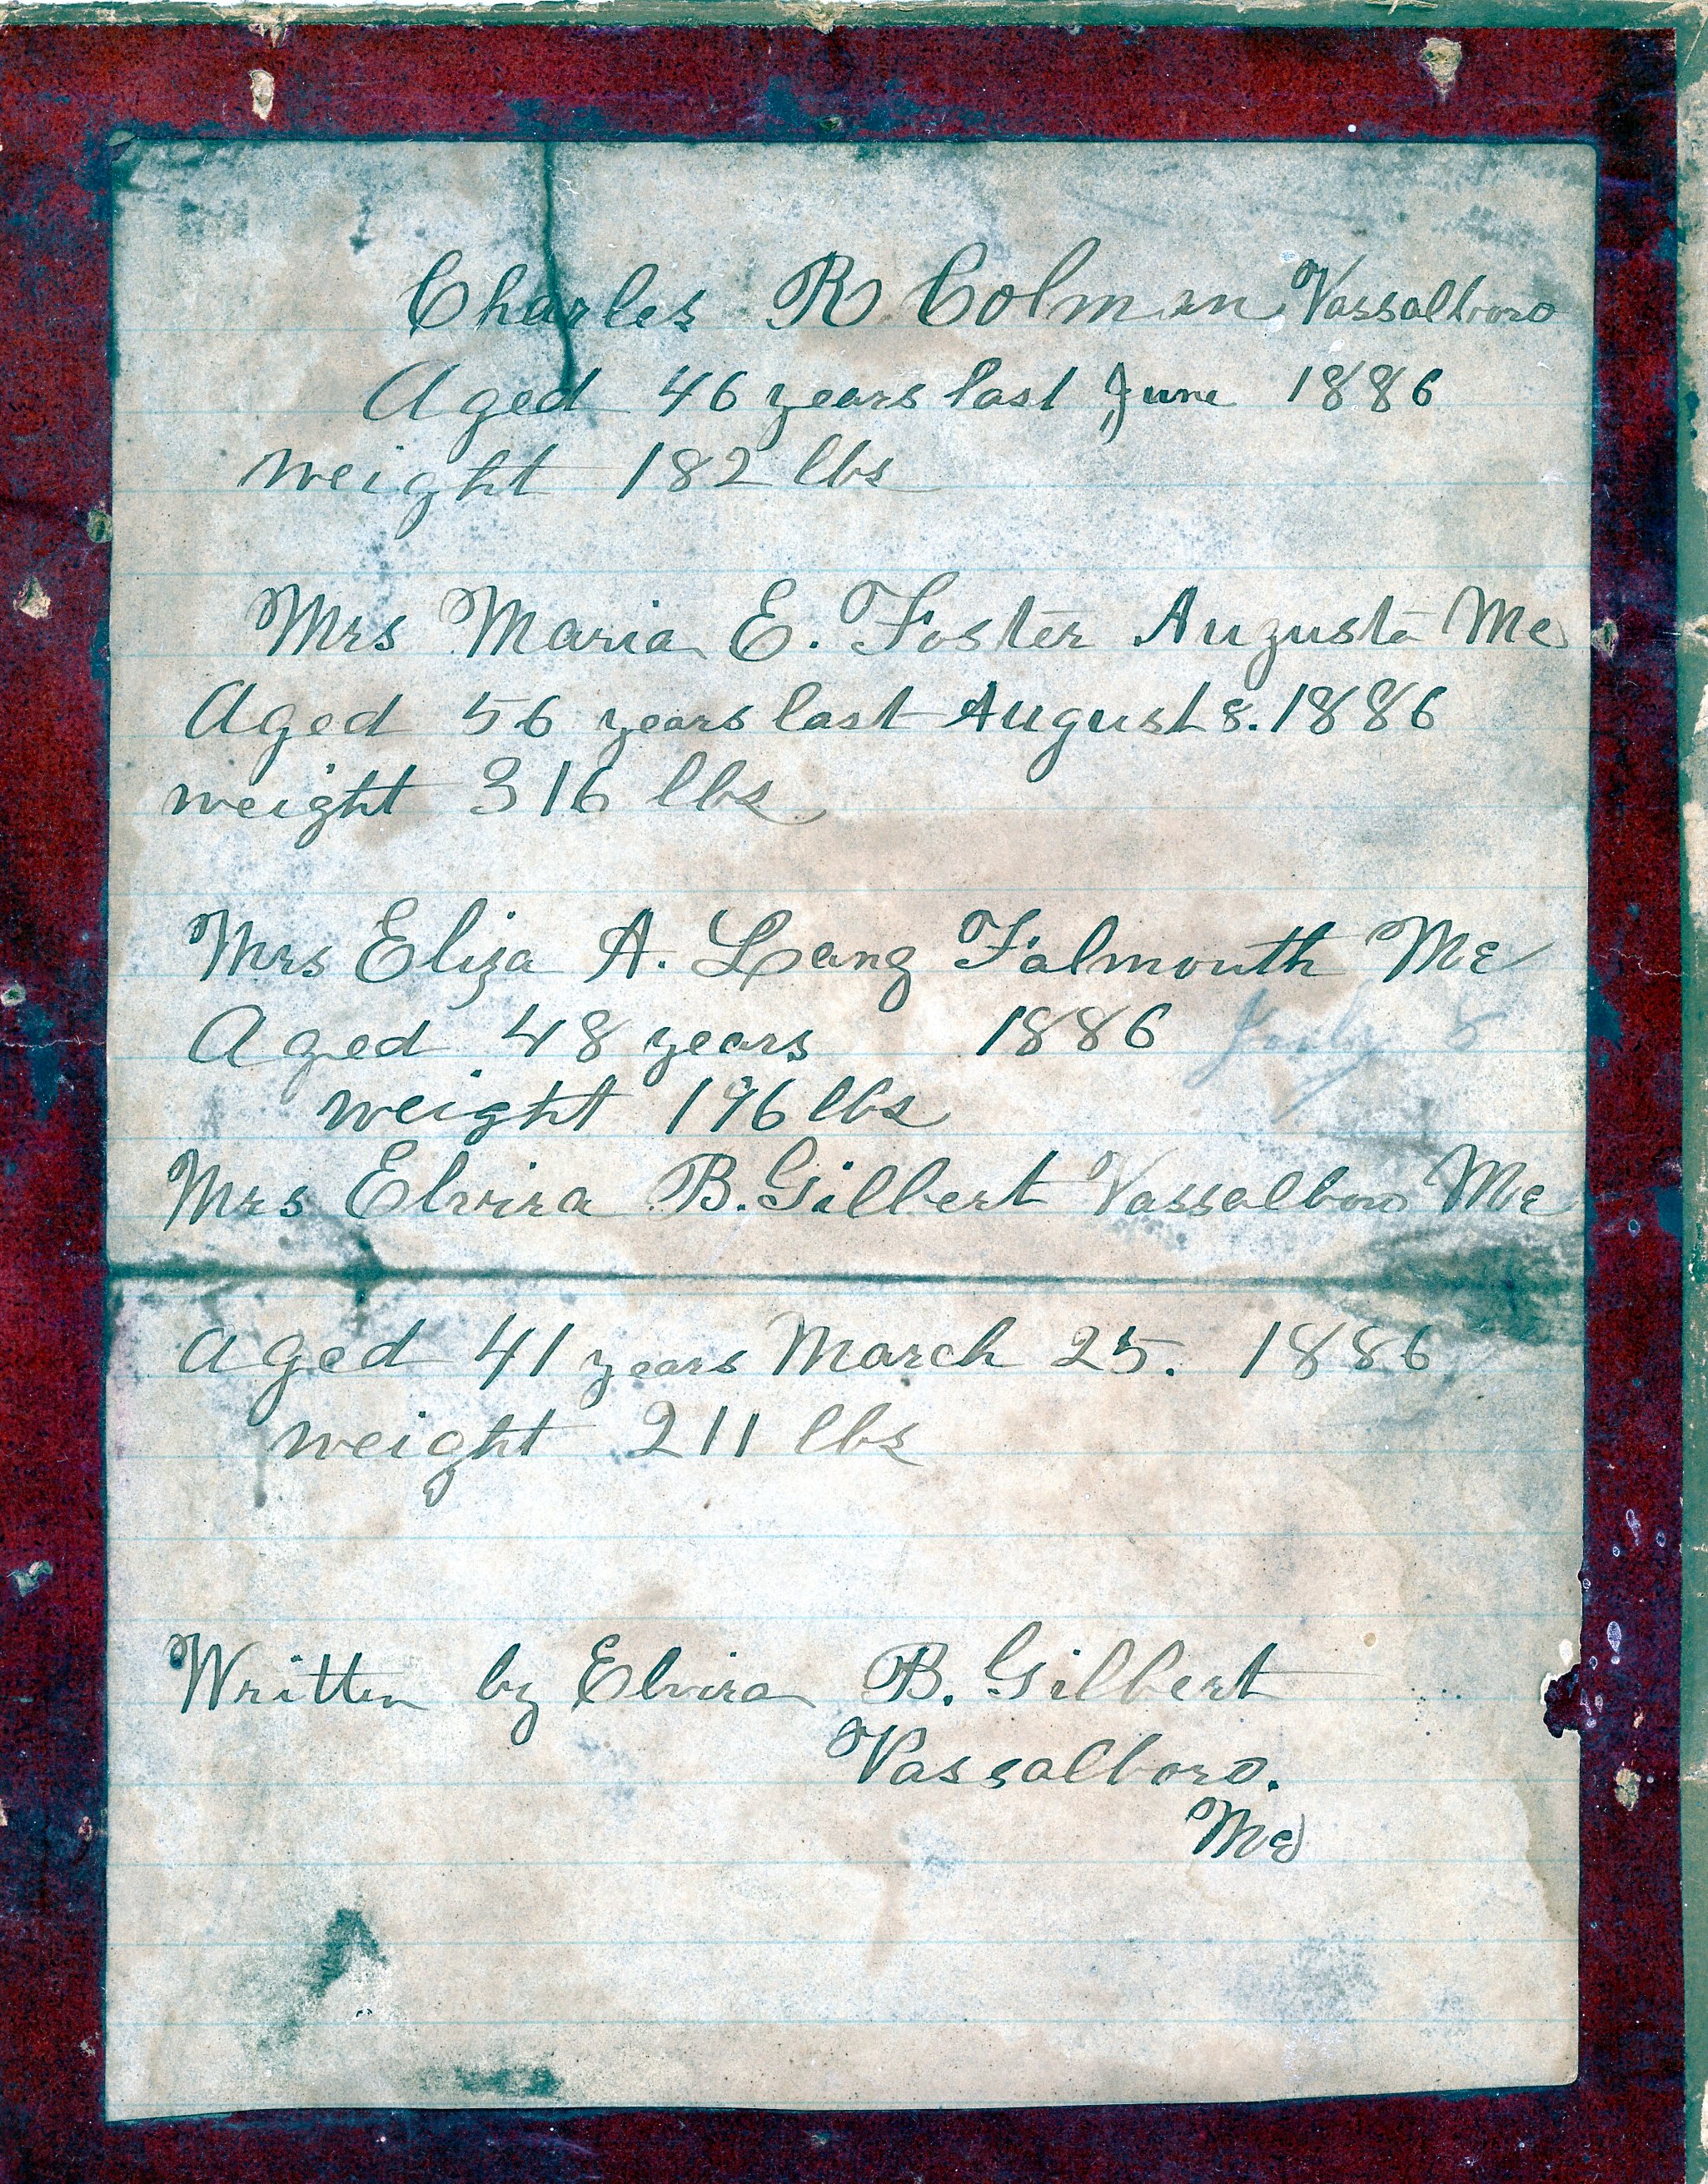 Charles R Colman Vassalboro
Aged 46 years last June 1886
weight 182 lbs
Mrs Maria E. Foster Augusta Me
Aged 56 years last August 8. 1886
weight 316 lbs
Mrs Eliza A. Lang Falmouth Me
Aged 48 years 1886 July 8
weight 196 lbs
Mrs Elvira B. Gilbert Vassalboro Me
Aged 41 years March 25. 1886
weight 211 lbs
Written by Elvira B. Gilbert
Vassalboro.
Me